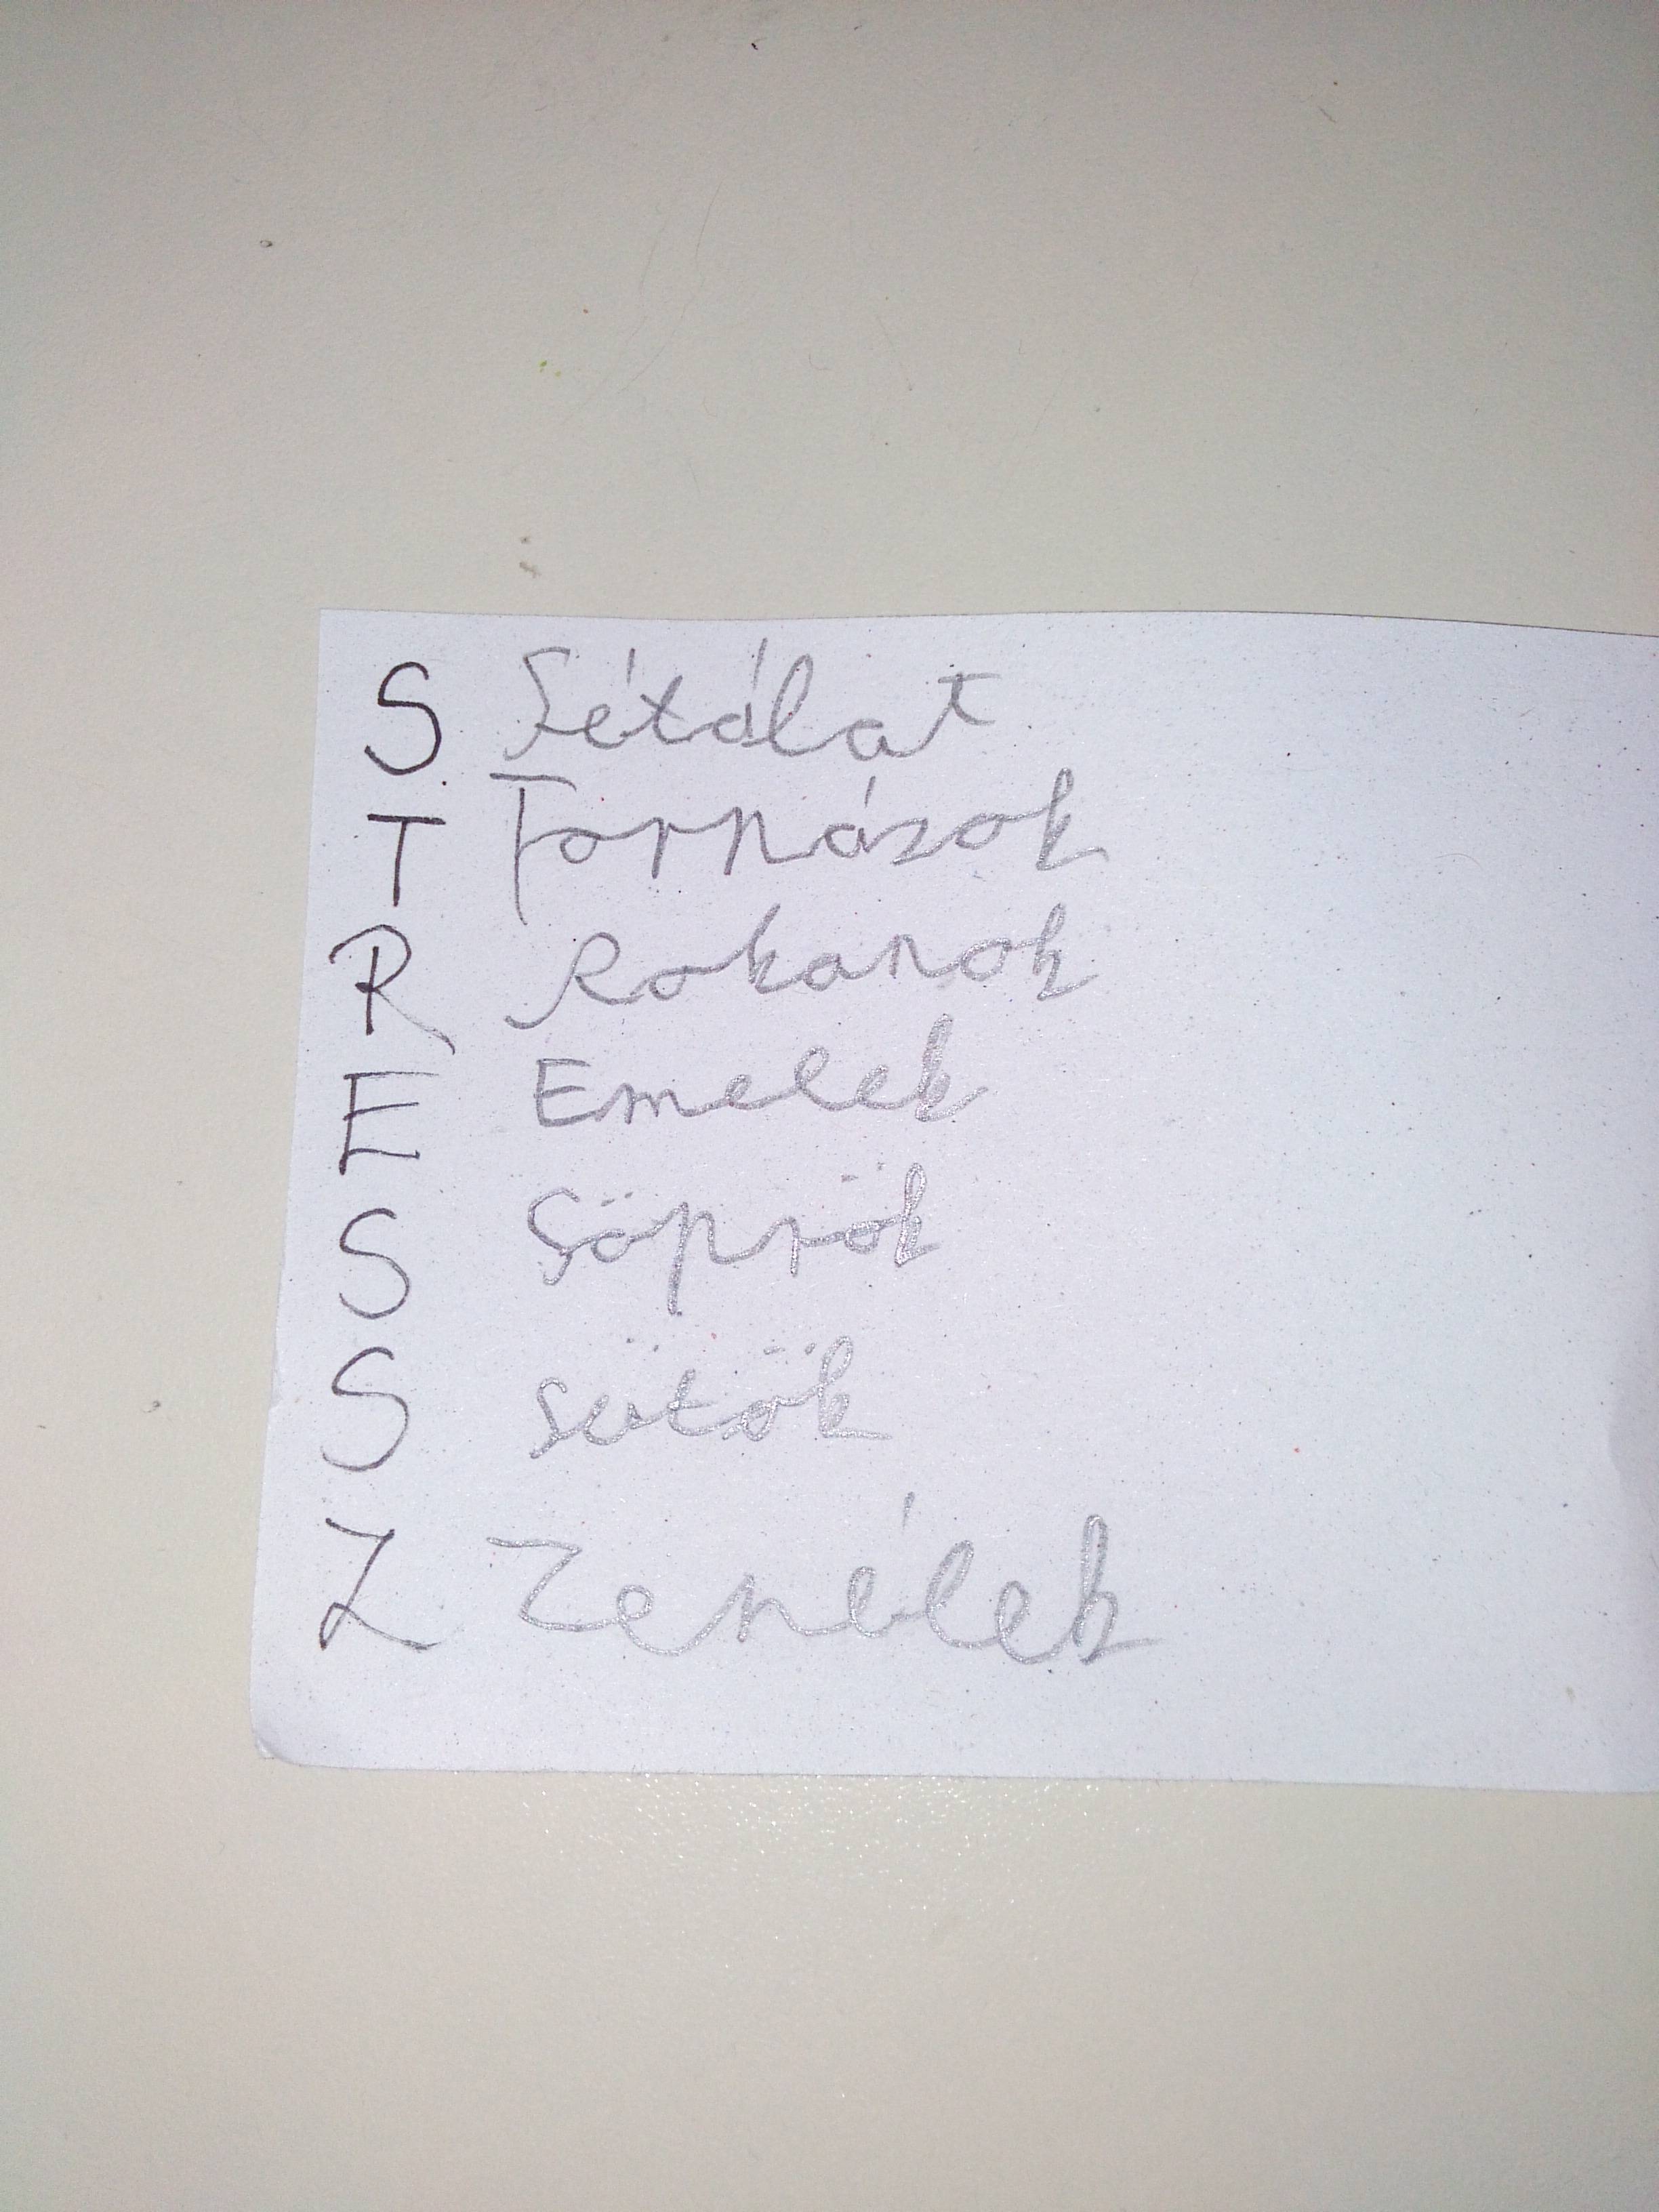 S Sétálat
T Tornázok
R Rokonok
E Emelek
S Söprök
S Sütök
Z Zenélek